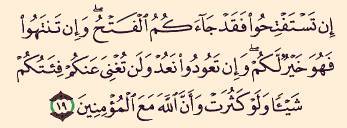 إِن تَسْتَفْتِحُوا۟ فَقَدْ جَآءَكُمُ ٱلْفَتْحُ ۖ وَإِن تَنتَهُوا۟
فَهُوَ خَيْرٌ لَّكُمْ ۖ وَإِن تَعُودُوا۟ نَعُدْ وَلَن تُغْنِىَ عَنكُمْ فِئَتُكُمْ
شَيْـًٔا وَلَوْ كَثُرَتْ وَأَنَّ ٱللَّهَ مَعَ ٱلْمُؤْمِنِينَ ١٩